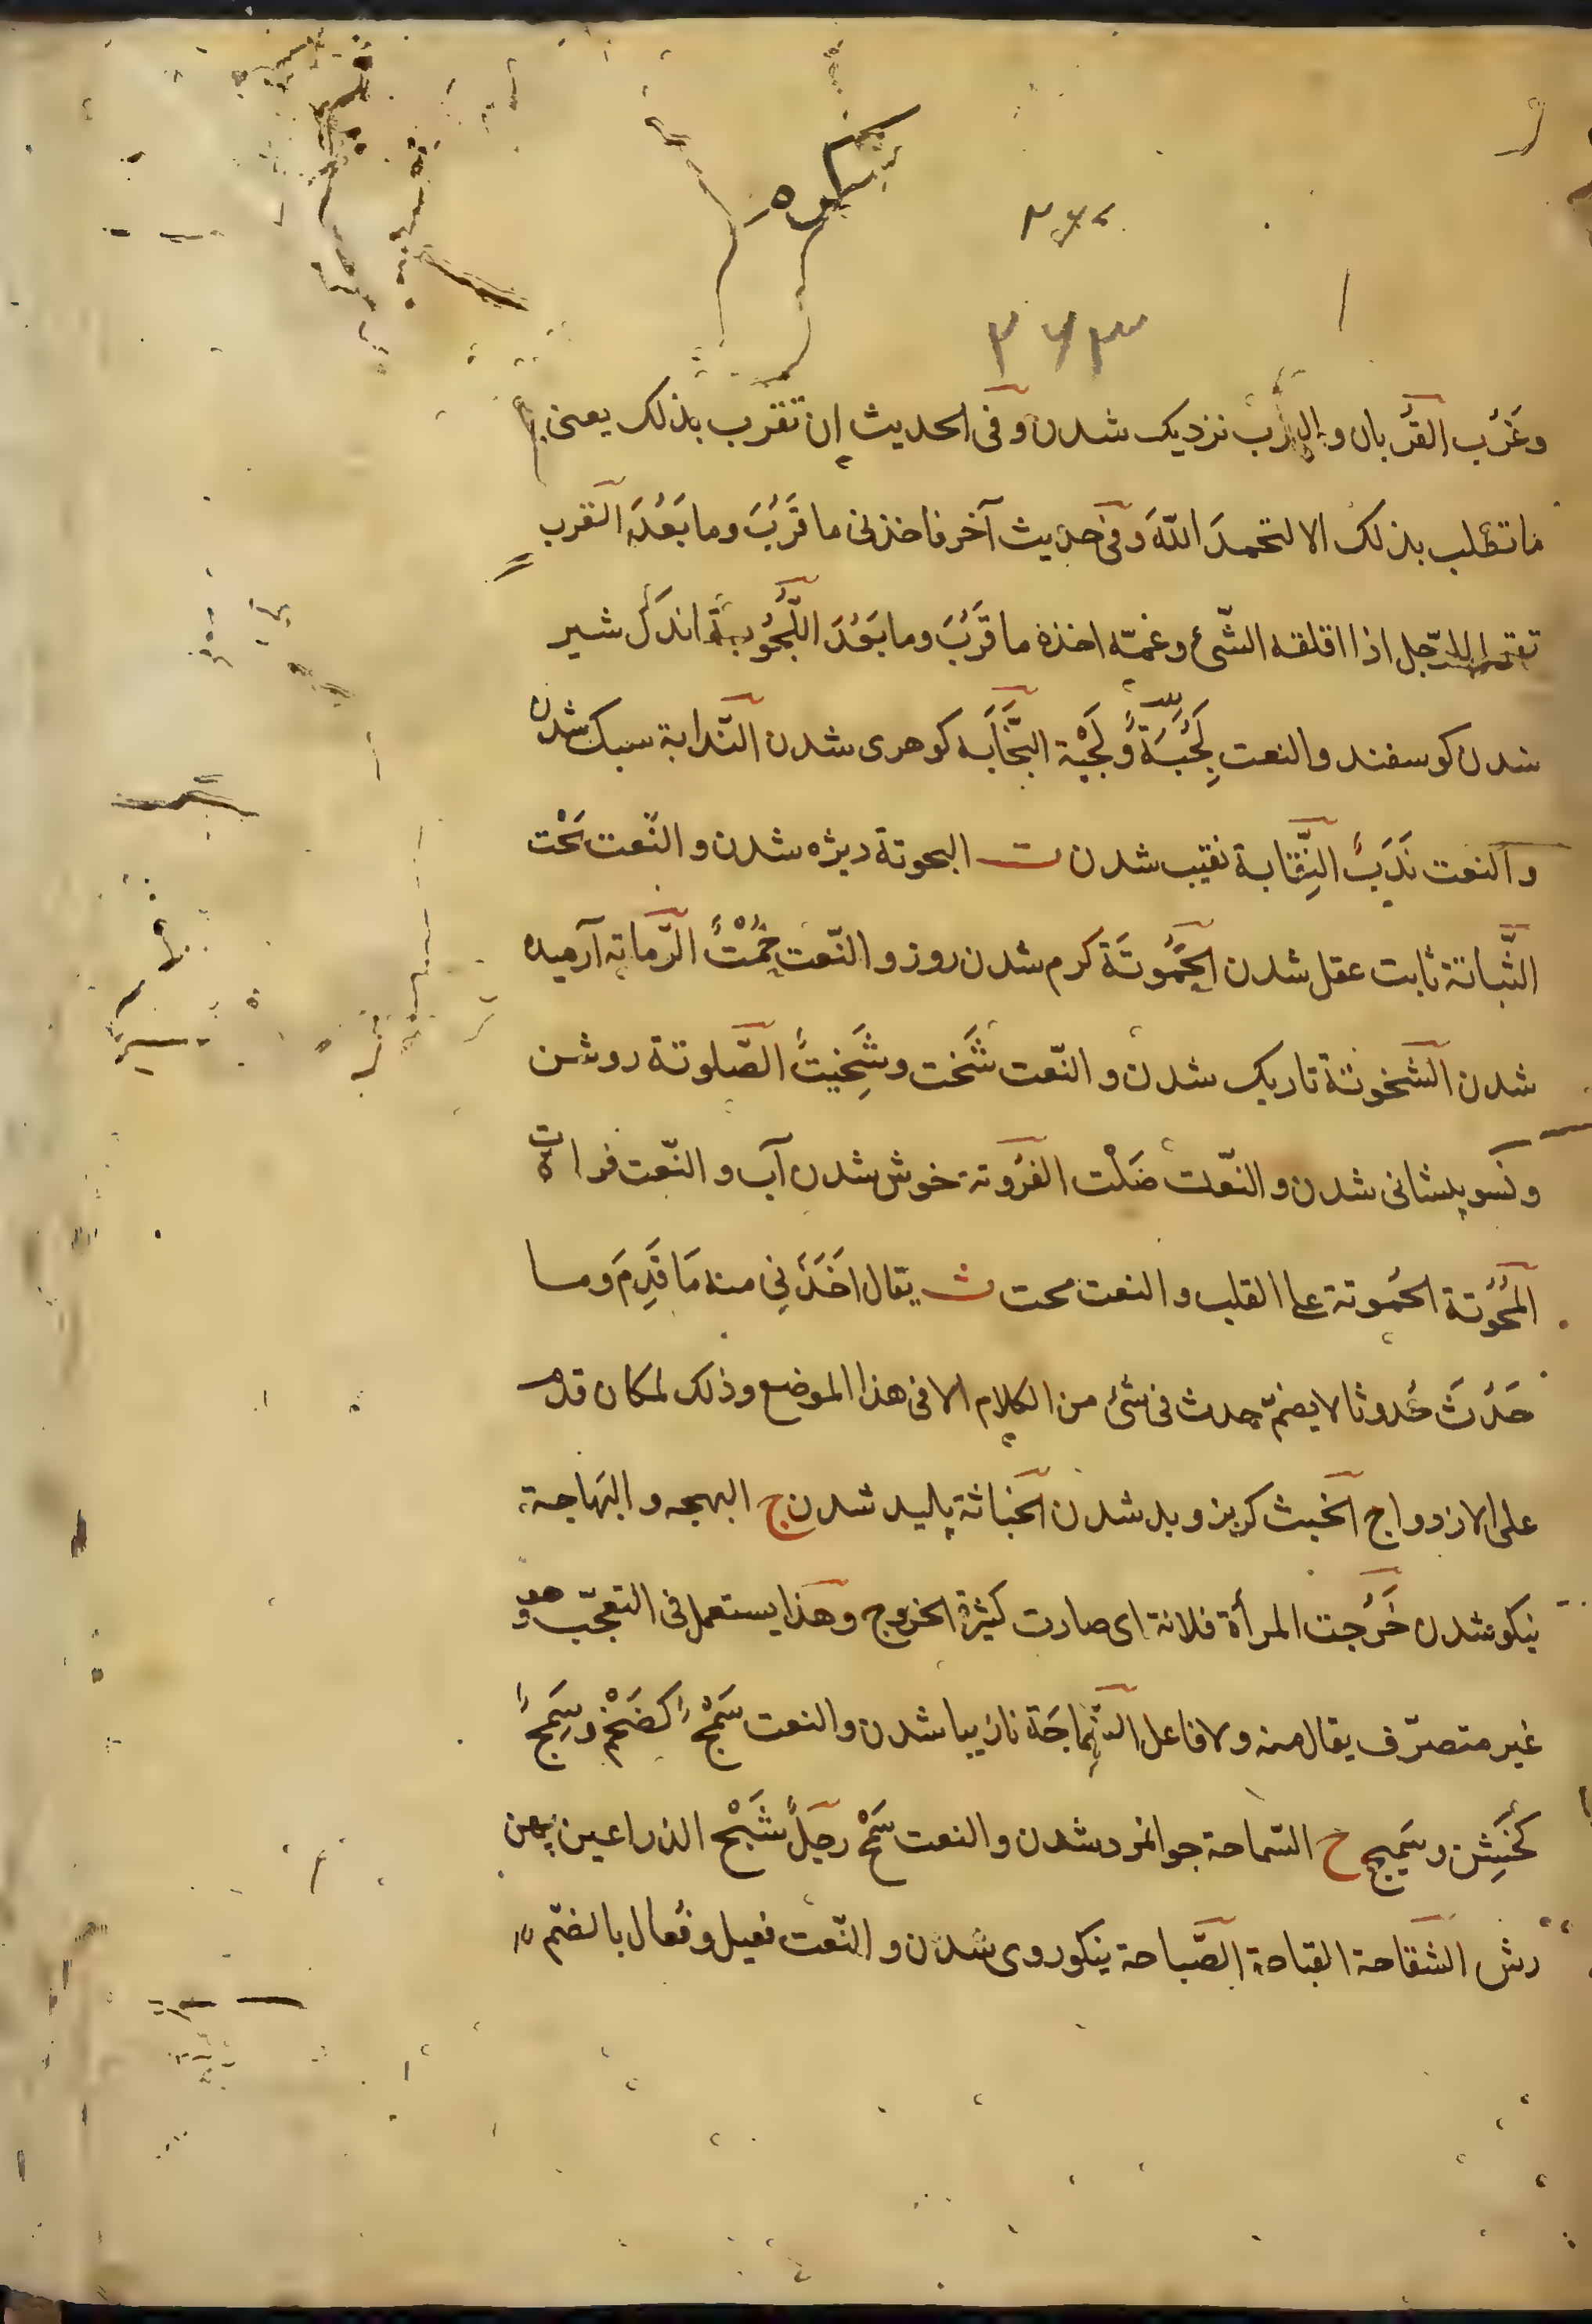 ۳۶۲
۳۶۳
وغَرُب القُربان و القرب نزدیک شدن وفی الحدیث ان تقرب بذلک یعنی
ما تطلب بذلک الا لتحمدَ اللّٰهَ وفی حدیث آخر فاخذنی ما قَرُبَ وما بَعُدَ القرب
للرّجل اذا اقلقه الشّئ وغمّه اخذه ما قَرُبَ وما بَعُدَ اللُّجُوبة اندک شیر
شدن کوسفند والنعت لَجِبَةٌ ولَجْبَة النَّجَابَه کوهری شدن النّدابة سبک شدن
والنعت نَدَبٌ النِّقابة نقیب شدن ت البحوتة ویژه شدن والنّعت بَحْت
الثَّباتة ثابت عقل شدن الحَمُوتَة کرم شدن روز والنّعت حَمْتٌ الزّماتة آرمیده
شدن الشخوتة تاریک شدن والنّعت شَخت وشَخِیتٌ الصّلوتة روشن
ونکو پیشانی شدن والنّعت صَلْت الفُرُوتة خوش شدن آب والنّعت فرات
المُحُوتة الحُموتة علی القلب والنعت محت ث یقال اَخَذَنِی منه مَا قَدُمَ وما
حَدُثَ حُدوثا لا یضمّ حدث فی شئ من الکلام الا فی هذا الموضع وذلک لمکان قدم
علی الازدواج الخبث کربز وبد شدن الخباثة پلید شدن ج البهجه والبَهاجة
نیکو شدن خَرُجت المرأة فلانة ای صارت کثیرة الخروج وهذا یستعمل فی التعجّب وهو
غیر متصرّف یقال منه ولا فاعل السَّماجَة نازیبا شدن والنعت سَمْجٌ کضَخْم وسَمِجٌ
کخَشِن وسَمِیج ح السّماحة جوانمرد شدن والنعت سَمْح رجلٌ شَبْح الذراعین پهن
رش الشقاحة القباحة الصّباحة نیکوروی شدن والنّعت فعیل وفُعال بالضّم